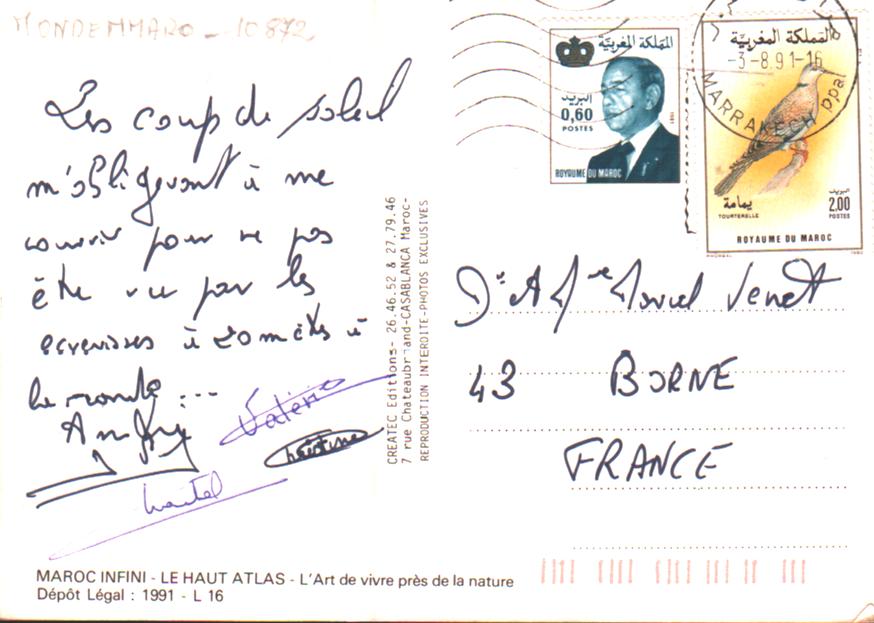 MONDEMMARO - 10872
Les coup de soleil
m'obligeront à me
couvrir pour ne pas
être vu par les
ecrevisses à 20 mètres à
la ronde ...
André
Valérie
Christine
CREATEC Editions- 26.46.52 & 27.79.46
7 rue Chateaubriand-CASABLANCA Maroc-
REPRODUCTION INTERDITE-PHOTOS EXCLUSIVES
المملكة المغربية
البريد
0,60
POSTES
ROYAUME DU MAROC
المملكة المغربية
-3-8.91-16
MARRAKECH ppal
يمامة
TOURTERELLE
البريد
2.00
POSTES
ROYAUME DU MAROC
Mr et Mme Marcel Venet
43 BORNE
FRANCE
MAROC INFINI - LE HAUT ATLAS - L'Art de vivre près de la nature
Dépôt Légal : 1991 - L 16